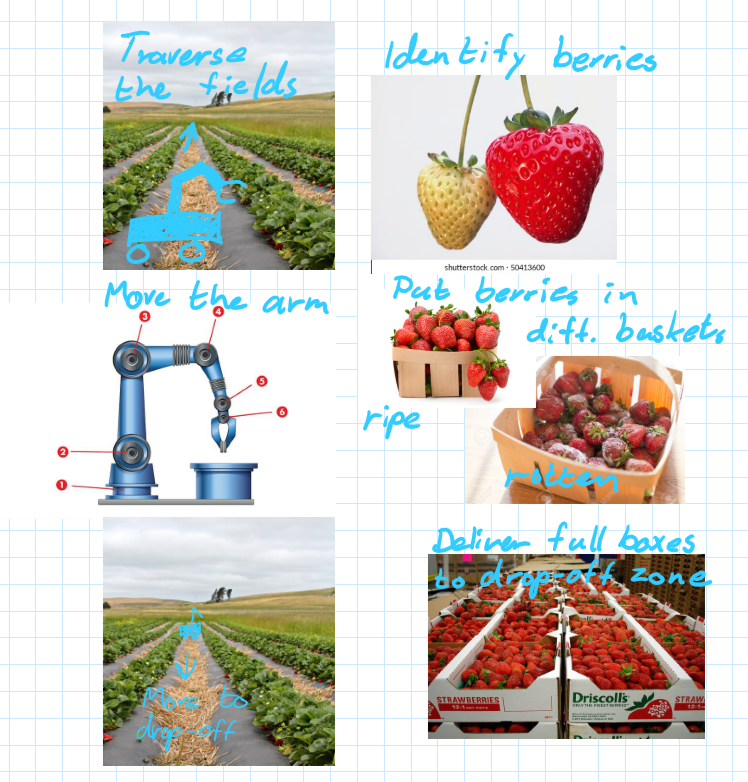 Traverse
the fields
Identify berries
shutterstock.com · 50413600
Move the arm
3
4
5
6
2
1
Put berries in
diff. baskets
ripe
rotten
Move to
drop-off
Deliver full boxes
to drop-off zone
STRAWBERRIES
Driscoll's
ONLY THE FINEST BERRIES
STRAW
Driscoll's